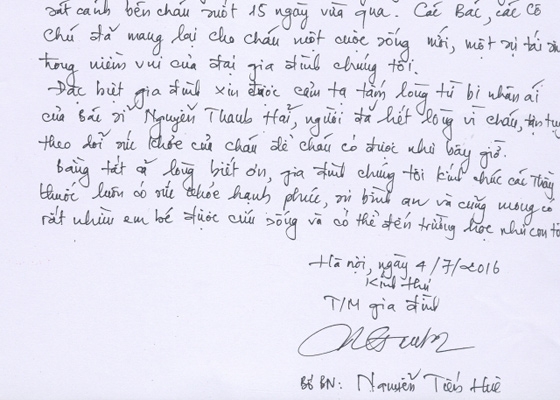 sát cánh bên cháu suốt 15 ngày vừa qua. Các Bác, các Cô
Chú đã mang lại cho cháu một cuộc sống mới, một sự tái
trong niềm vui của đại gia đình chúng tôi.
Đặc biệt gia đình xin được cảm tạ tấm lòng từ bi nhân ái
của Bác sĩ Nguyễn Thanh Hải, người đã hết lòng vì cháu, tận tuỵ
theo dõi sức khỏe của cháu để cháu có được như bây giờ.
Bằng tất cả lòng biết ơn, gia đình chúng tôi kính chúc các Thầy
thuốc luôn có sức khỏe hạnh phúc, sự bình an và cũng mong có
rất nhiều em bé được cứu sống và có thể đến trường học như con tôi
Hà nội, ngày 4/7/2016
Kính thư
T/M gia đình
Bố BN: Nguyễn Tiến Huề